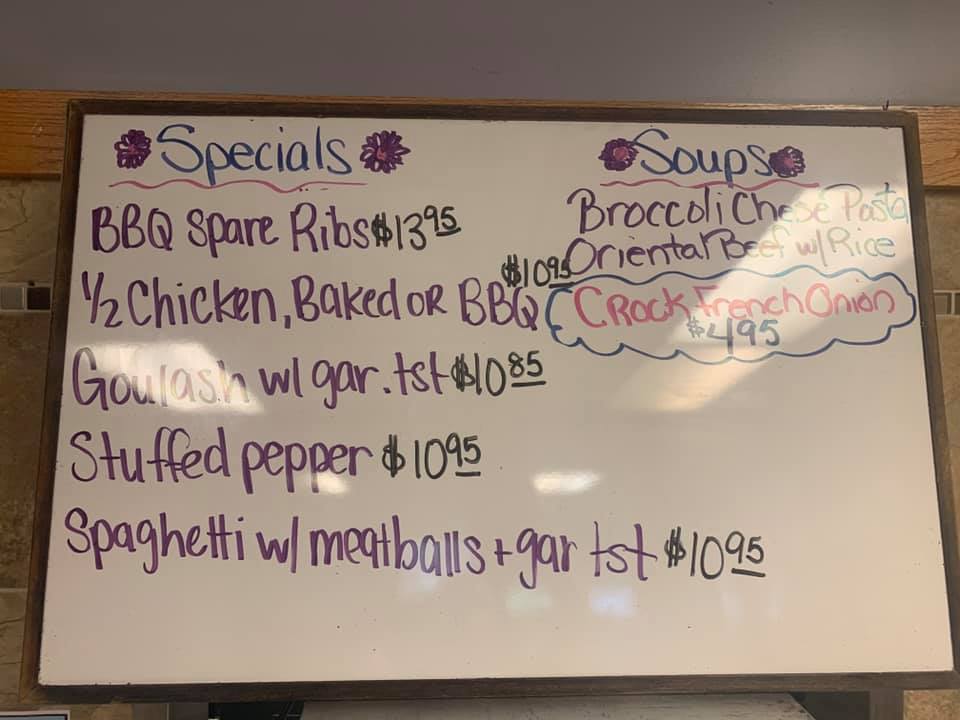 Specials
BBQ Spare Ribs $13 95
$10 95
1/2 Chicken, Baked or BBQ
Goulash w/ gar. tst $10 85
Stuffed pepper $10 95
Spaghetti w/ meatballs + gar tst $10 95
Soups
Broccoli Chese Pasta
Oriental Beef w/ Rice
Crock French Onion
$4 95